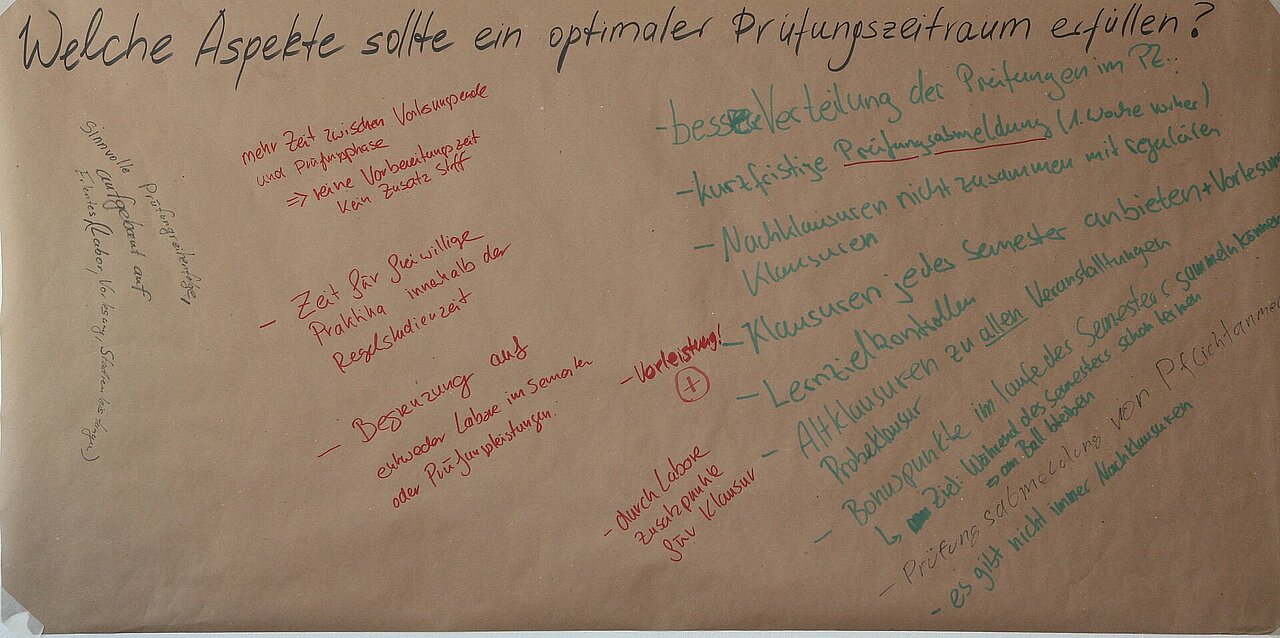 Welche Aspekte sollte ein optimaler Prüfungszeitraum erfüllen?
Sinnvolle Prüfungsreihenfolge,
aufgebaut auf
(Labor, Vorlesung,
mehr Zeit zwischen Vorlesungsende
und Prüfungsphase
=> reine Vorbereitungszeit
kein Zusatz stoff
- Zeit für freiwillige
Praktika innerhalb der
Regelstudienzeit
- Begrenzung auf
entweder Labore im Semester
oder Prüfungsleistungen.
- Vorleistung!
+
- durch Labore
Zusatzpunkte
für Klausur
- bessere Verteilung der Prüfungen im PZ..
- kurzfristige Prüfungsabmeldung (1. Woche vorher)
- Nachklausuren nicht zusammen mit regulären
Klausuren
- Klausuren jedes Semester anbieten + Vorlesun
- Lernzielkontrollen
- Altklausuren zu allen Veranstalltungen
Probeklausur
- Bonuspunkte im laufe des Semesters sammeln können
↳ Ziel: Während des Semesters schon lernen
=> am Ball bleiben
- Prüfungsabmeldung von Pflichtanme
- es gibt nicht immer Nachklausuren